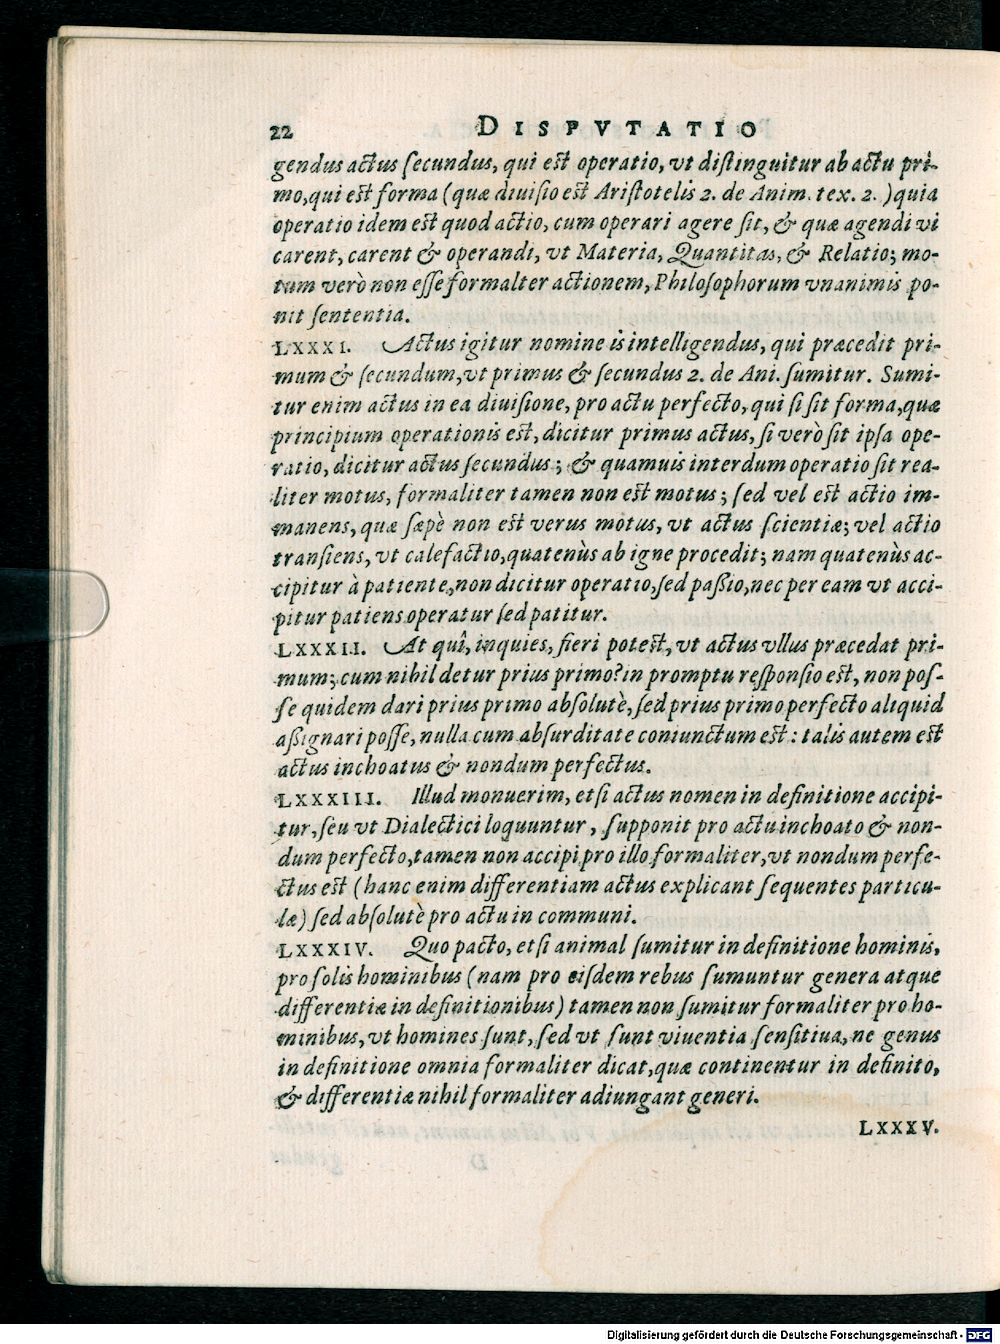 22 DISPVTATIO
gendus actus ſecundus, qui est operatio, vt diſtinguitur ab actu pri-
mo, qui est forma (quæ diuiſio est Ariſtotelis 2. de Anim. tex. 2. ) quia
operatio idem est quod actio, cum operari agere ſit, & quæ agendi vi
carent, carent & operandi, vt Materia, Quantitas, & Relatio; mo-
tum verò non eſſe formalter actionem, Philoſophorum vnanimis po-
nit ſententia.
LXXXI. Actus igitur nomine is intelligendus, qui præcedit pri-
mum & ſecundum, vt primus & ſecundus 2. de Ani. ſumitur. Sumi-
tur enim actus in ea diuiſione, pro actu perfecto, qui ſi ſit forma, quæ
principium operationis est, dicitur primus actus, ſi verò ſit ipſa ope-
ratio, dicitur actus ſecundus; & quamuis interdum operatio ſit rea-
liter motus, formaliter tamen non est motus; ſed vel est actio im-
manens, quæ ſæpè non est verus motus, vt actus ſcientiæ; vel actio
tranſiens, vt calefactio, quatenùs ab igne procedit; nam quatenùs ac-
cipitur à patiente, non dicitur operatio, ſed paßio, nec per eam vt acci-
pitur patiens operatur ſed patitur.
LXXXII. At quî, inquies, fieri potest, vt actus vllus præcedat pri-
mum; cum nihil detur prius primo? in promptu reſponſio est, non poſ-
ſe quidem dari prius primo abſolutè, ſed prius primo perfecto aliquid
aßignari poſſe, nulla cum abſurditate coniunctum est: talis autem est
actus inchoatus & nondum perfectus.
LXXXIII. Illud monuerim, etſi actus nomen in definitione accipi-
tur, ſeu vt Dialectici loquuntur, ſupponit pro actu inchoato & non-
dum perfecto, tamen non accipi pro illo formaliter, vt nondum perfe-
ctus est (hanc enim differentiam actus explicant ſequentes particu-
læ) ſed abſolutè pro actu in communi.
LXXXIV. Quo pacto, etſi animal ſumitur in definitione hominis,
pro ſolis hominibus (nam pro eiſdem rebus ſumuntur genera atque
differentiæ in definitionibus) tamen non ſumitur formaliter pro ho-
minibus, vt homines ſunt, ſed vt ſunt viuentia ſenſitiua, ne genus
in definitione omnia formaliter dicat, quæ continentur in definito,
& differentiæ nihil formaliter adiungant generi.
LXXXV.
Digitalisierung gefördert durch die Deutsche Forschungsgemeinschaft - DFG